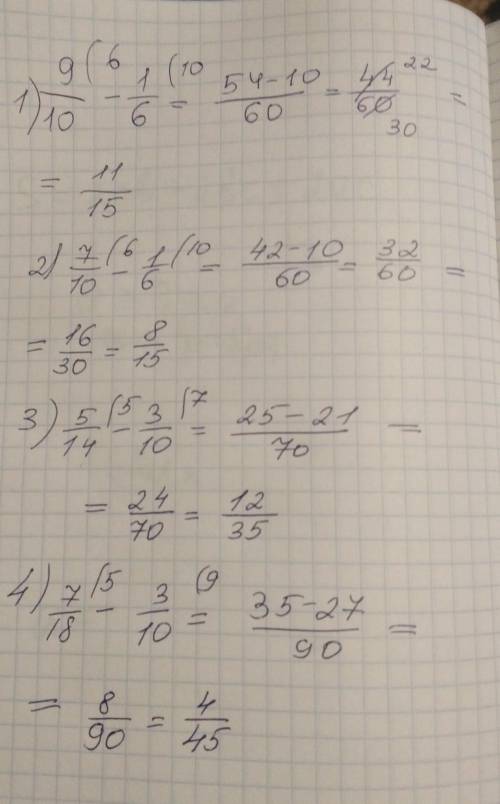 1) 9/10 (6 - 1/6 (10 = 54-10/60 = 44/60 22/30 =
= 11/15
2) 7/10 (6 - 1/6 (10 = 42-10/60 = 32/60 =
= 16/30 = 8/15
3) 5/14 (5 - 3/10 (7 = 25-21/70 =
= 24/70 = 12/35
4) 7/18 (5 - 3/10 (9 = 35-27/90 =
= 8/90 = 4/45